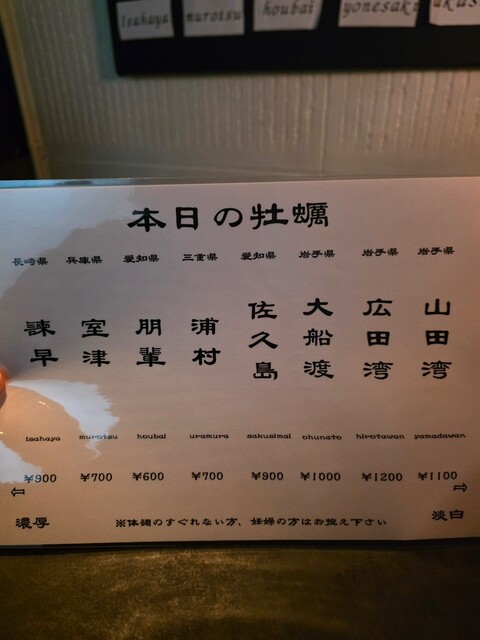 Isahaya murotsu houbai yonesaki
本日の牡蠣
長崎県 兵庫県 愛知県 三重県 愛知県 岩手県 岩手県 岩手県
諫早 室津 朋輩 浦村 佐久島 大船渡 広田湾 山田湾
isahaya murotsu houbai uramura sakusimai ohunato hirotawan yamadawan
¥900 ¥700 ¥600 ¥700 ¥900 ¥1000 ¥1200 ¥1100
⇦ ⇨
濃厚 ※体調のすぐれない方、妊婦の方はお控え下さい 淡白